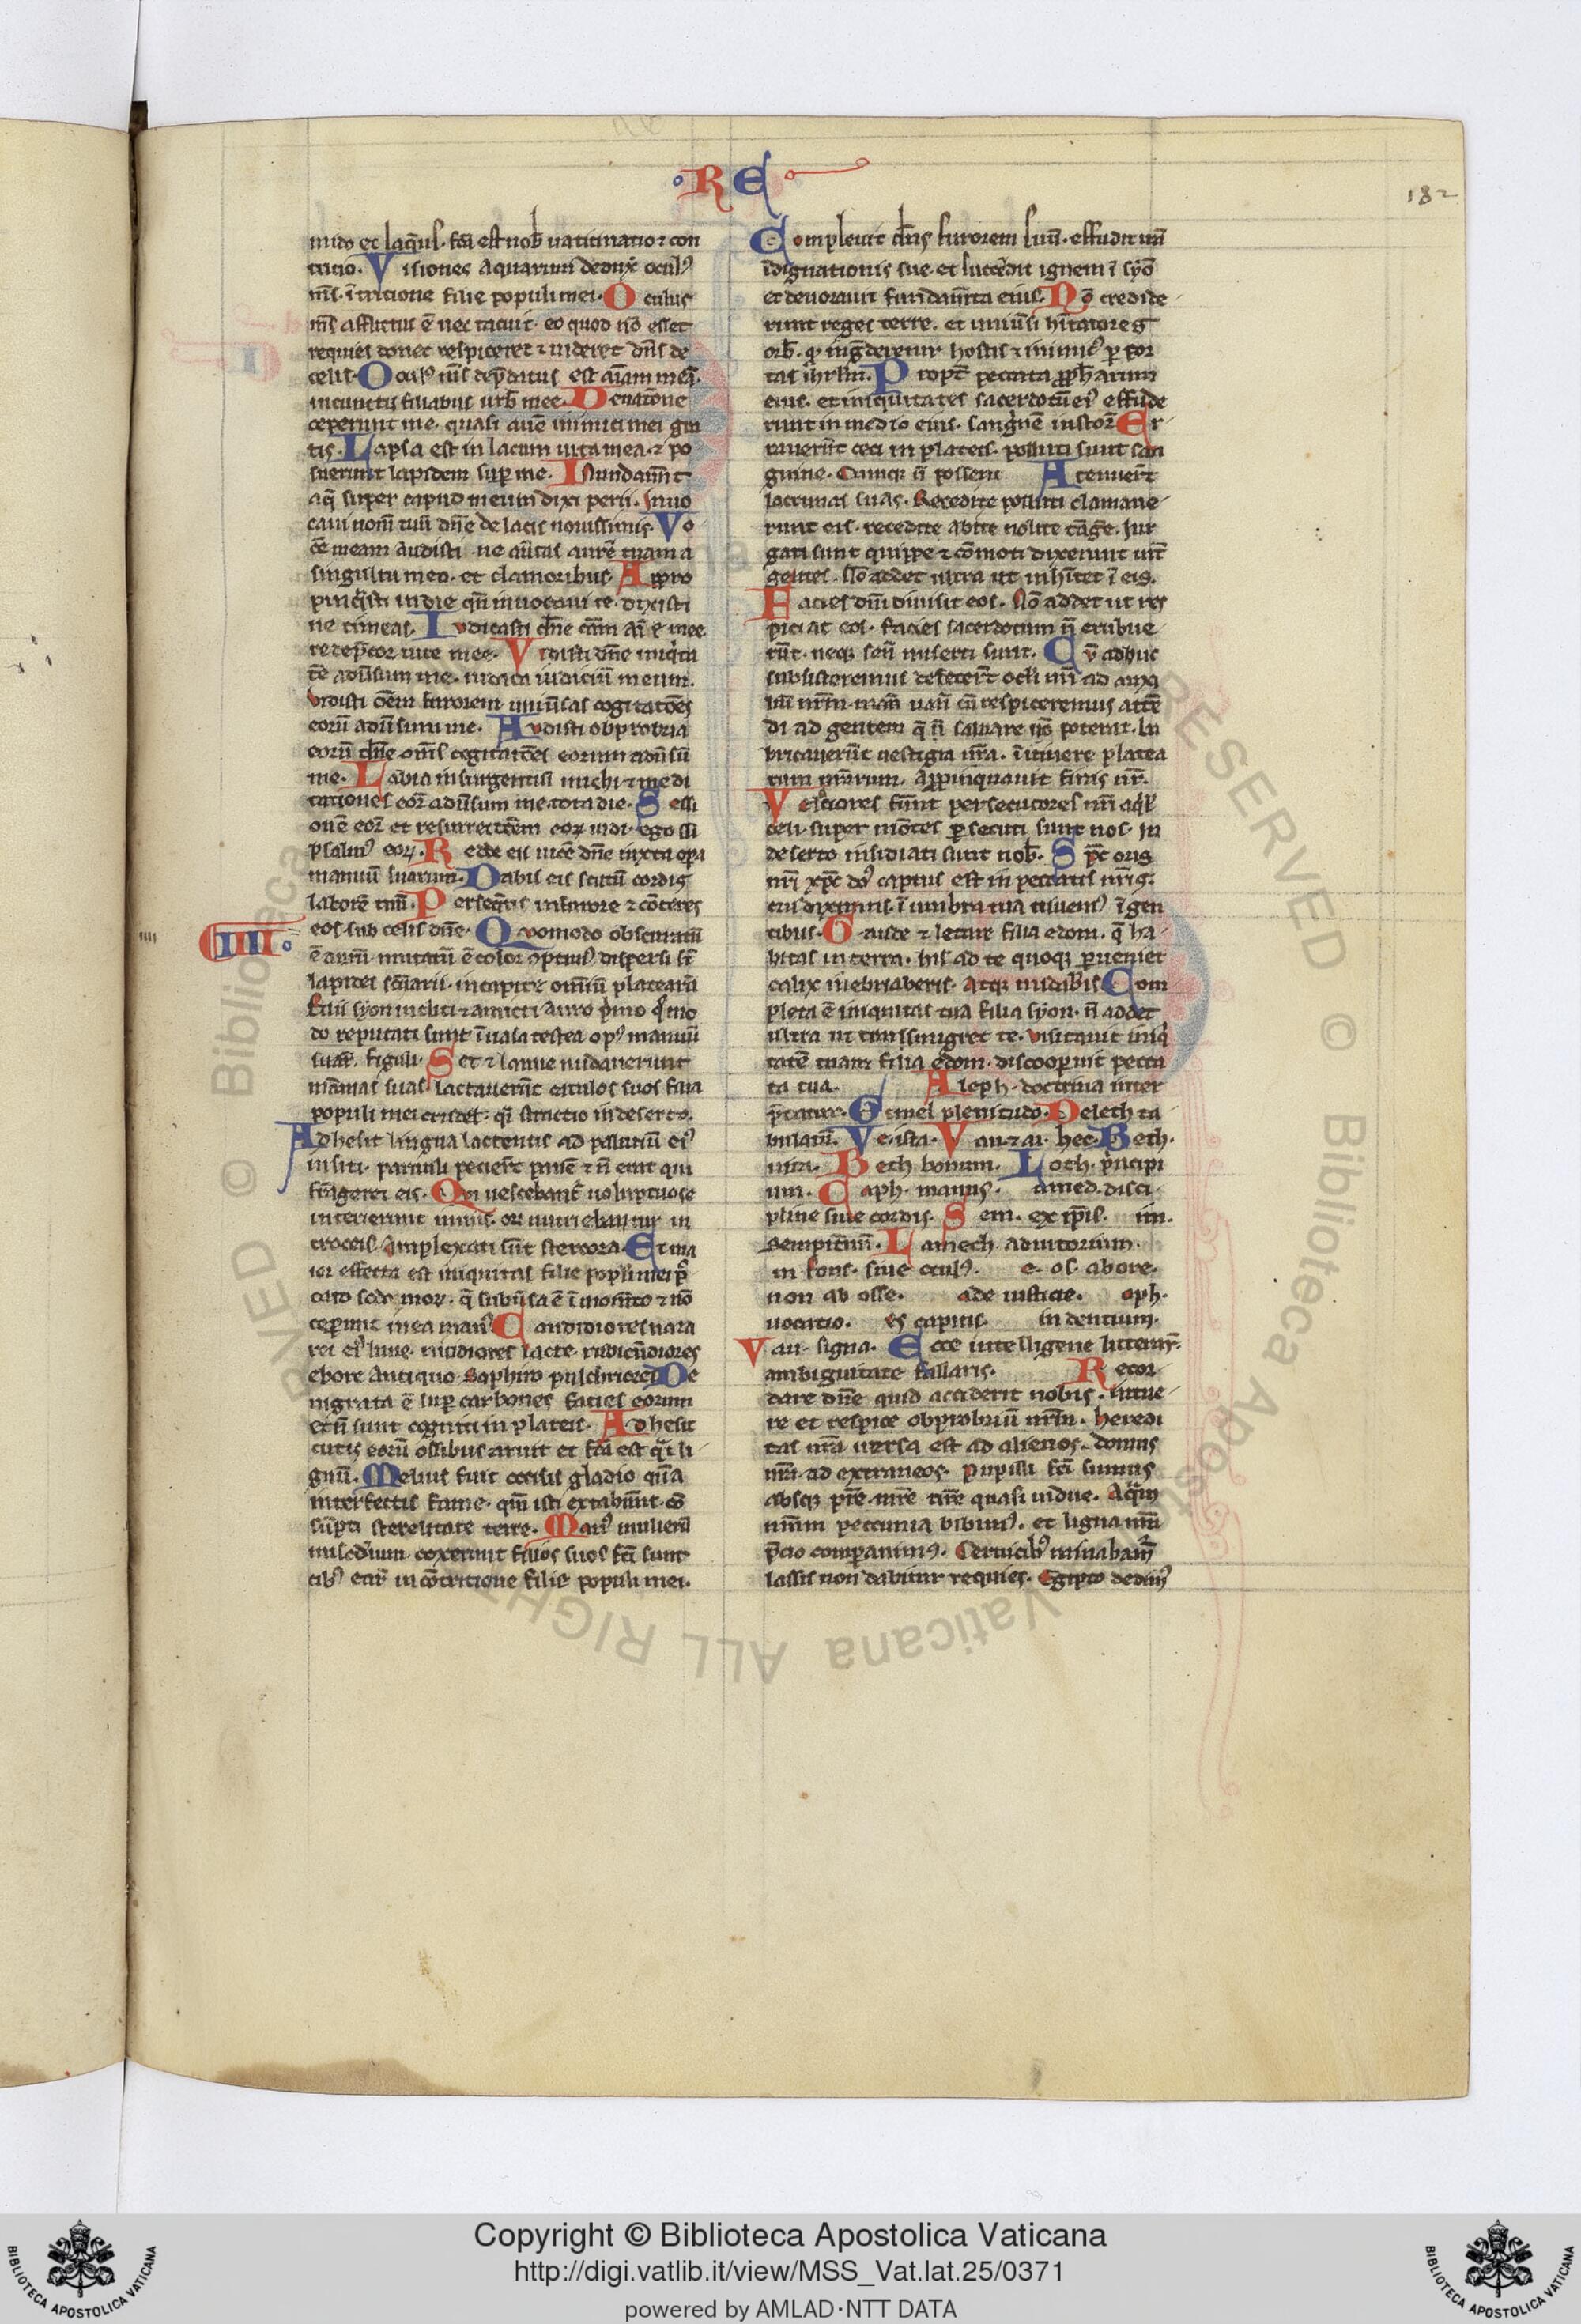 RE
182
mido et laq̄us. fcā est nob̄ uaticinatio ⁊ con
tritio. Visiones aquarum deduxͥ oculꝰ
mͥs. ī tritione filie populi mei. Oculus
mͥs afflictus ē nec tacuit. eo quod nō esset
requies donec respiceret ⁊ uideret dn̄s de
celis. Oculꝰ mͥs dep̄datus est aīam meā.
in cunctis filiabus urb̄ mee. Venatōne
ceperunt me. quasi auē inimici mei gͣ
tis. Lapsa est in lacum uita mea. ⁊ po
suerunt lapidem suꝑ me. Inundauer̄t
aq̄ super caput meum dixi perii. Inuo
caui nom̄ tuū dn̄e de lacis nouissimis. Vo
cē meam audisti. ne au̅tas aurē tuam a
singultu meo. et clamoribus. Appro
pinq̄sti in die qn̄ inuocaui te. dixisti
ne timeas. Iudicasti dn̄e cām aīe mee
redēptor uite mee. Vidisti dn̄e iniq̇ta
tē adu̅sum me. iudica iudiciū meum.
Vidisti ōem furorem uniu̅sas cogitatōes
eorū adu̅sum me. Audisti obprobria
eorū dn̄e om̄s cogitatōes eorum adu̅sū
me. Labia insurgentiū michi ⁊ medi
tationes eoꝝ adu̅sum me tota die. Sessi
onē eoꝝ et resurrectōem eoꝝ uidi. ego sū
psalmꝰ eoꝝ. Redde eis uicē dn̄e iuxta oꝑa
manuū suarum. Dabis eis scutū cordis
laborē tuū. Perseq̄ris in furore ⁊ cōteres
IIII.
eos sub celis dn̄e. Quomodo obscuratū
ē aurū. mutatū ē color optimꝰ dispersi sūt
lapides sc̄uarii. in capite om̄iū platearū
Filii syon incliti ⁊ amicti auro p̄mo q̊mo
do reputati sunt ī uasa testea opꝰ manuū
suaꝝ figuli. Set ⁊ lamie nudauerunt
māmas suas lactauer̄t catulos suos filia
populi mei crudel. qͣ structio in deserto.
Adhesit lingua lactentis ad palatum eiꝰ
in siti. paruuli petier̄t panē ⁊ n̄ erat qui
frangeret eis. Qui uescebant̄ uoluptuose
interierunt in uiis. qui nutriebantur in
croceis amplexati sūt stercora. Et ma
ior effecta est iniquitas filie popli mei p̄
cato sodomoꝝ. q̄ subu̅sa ē ī mom̄to ⁊ nō
ceꝑunt in ea manꝰ. Candidiores naza
rei eiꝰ niue. nitidiores lacte. rubicūdiores
ebore antiquo. Saphiro pulchriores De
nigrata ē suꝑ carbones facies eorum
et n̄ sunt cogniti in plateis. Adhesit
cutis eorū ossibus aruit et fcā est qͣi li
gnū. Melius fuit occisis gladio quā
interfectis fame. qm̄ isti extabuer̄t. cō
sūpti sterelitate terre. Manꝰ mulierū
misericordium coxerunt filios suos fcī sunt
cibꝰ earꝝ in cōtritione filie populi mei.
Compleuit dn̄s furorem suū. effudit irā
īdignationis sue. et succēdit ignem ī syō
et deuorauit fundam̄ta eius. Nō credide
runt reges terre. et uniu̅si h̄itatores
orb̄. qͦ ingr̄deretur hostis ⁊ inimicꝰ ꝑ por
tas ihrl̄m. Propt̄ peccata ꝓph̄arum
eius. et iniquitates sacerdotū eiꝰ effude
runt in medio eius. sanguinē iustoꝝ. Er
rauer̄t ceci in plateis. polluti sunt san
guine. Cumq; n̄ possent Atenuer̄t
lacinias suas. Recedite polluti clamaue
runt eis. recedite abite nolite tāgē. Iur
gati sunt quippe ⁊ cōmoti dixerunt int̄
gentes. Nō addet ultra ut inh̄itet ī eis.
Facies dn̄i diuisit eos. Nō addet ut res
piciat eos. facies sacerdotum n̄ erubue
rūt. neq; senū miserti sunt. Cū adhuc
subsisteremus defecer̄t ocl̄i nr̄i ad auxi
liū nr̄m. uanū cū respiceremus attē
di ad gentem q̄ n̄ saluare nō poterat. Lu
bricauer̄t uestigia nr̄a. ī itinere platea
rum nr̄arum. Appropinquauit finis nr̄.
Velociores fūnt persecutores nr̄i aqͥlꝭ
celi. super mōtes ꝑsecuti sunt nos. In
deserto insidiati sunt nob̄. Spc̄ oris
nr̄i xp̄c dō captus est in peccatis nr̄is.
cui diximus. ī umbra tua uiuemꝰ ī gen
tibus. Gaude ⁊ letare filia edom. q̄ ha
bitas in terra. hus ad te quoq; ꝑueniet
calix inebriaberis. atq; nudab̄is. Com
pleta ē iniquitas tua filia syon. n̄ addet
ultra ut transmigret te. Visitauit iniq̇
tatē tuam filia edom. discooꝑuit pecca
ta tua. Aleph. doctrina inter
p̄tatur. Gimel plenitudo. Deleth ta
bularū. Ve. ista. Vau. ⁊ ai. hec. Heth.
uita. Beth bonum. Ioth. p̄ncipi
um. Caph. manus. amed. disci
pline siue cordis. Sem. ex ip̄is. im.
sempit̄nū. Lamech. adiutorium.
in fons. siue oculꝰ. e. os. ab ore.
non ab osse. ade iusticie. oph.
uocatio. es capitis. in dentium.
Vau. signa. Ecce intelligene litterarꝝ
ambiguitate fallaris. Recor
dare dn̄e quid acciderit nobis. intue
re et respice obprobriū nr̄m. Heredi
tas nr̄a uersa est ad alienos. domus
nr̄a ad extraneos. Pupilli fcī sumus
absq; pr̄e. mr̄e nr̄e quasi uidue. Aquam
nr̄am peccunia bibimꝰ. et ligna nr̄a
p̄cio comparauimꝰ. Ceruicibꝰ minabam̄
lassis non dabitur requies. Egipto dedimꝰ
Copyright © Biblioteca Apostolica Vaticana
http://digi.vatlib.it/view/MSS_Vat.lat.25/0371
powered by AMLAD·NTT DATA
BIBLIOTECA APOSTOLICA VATICANA
BIBLIOTECA APOSTOLICA VATICANA